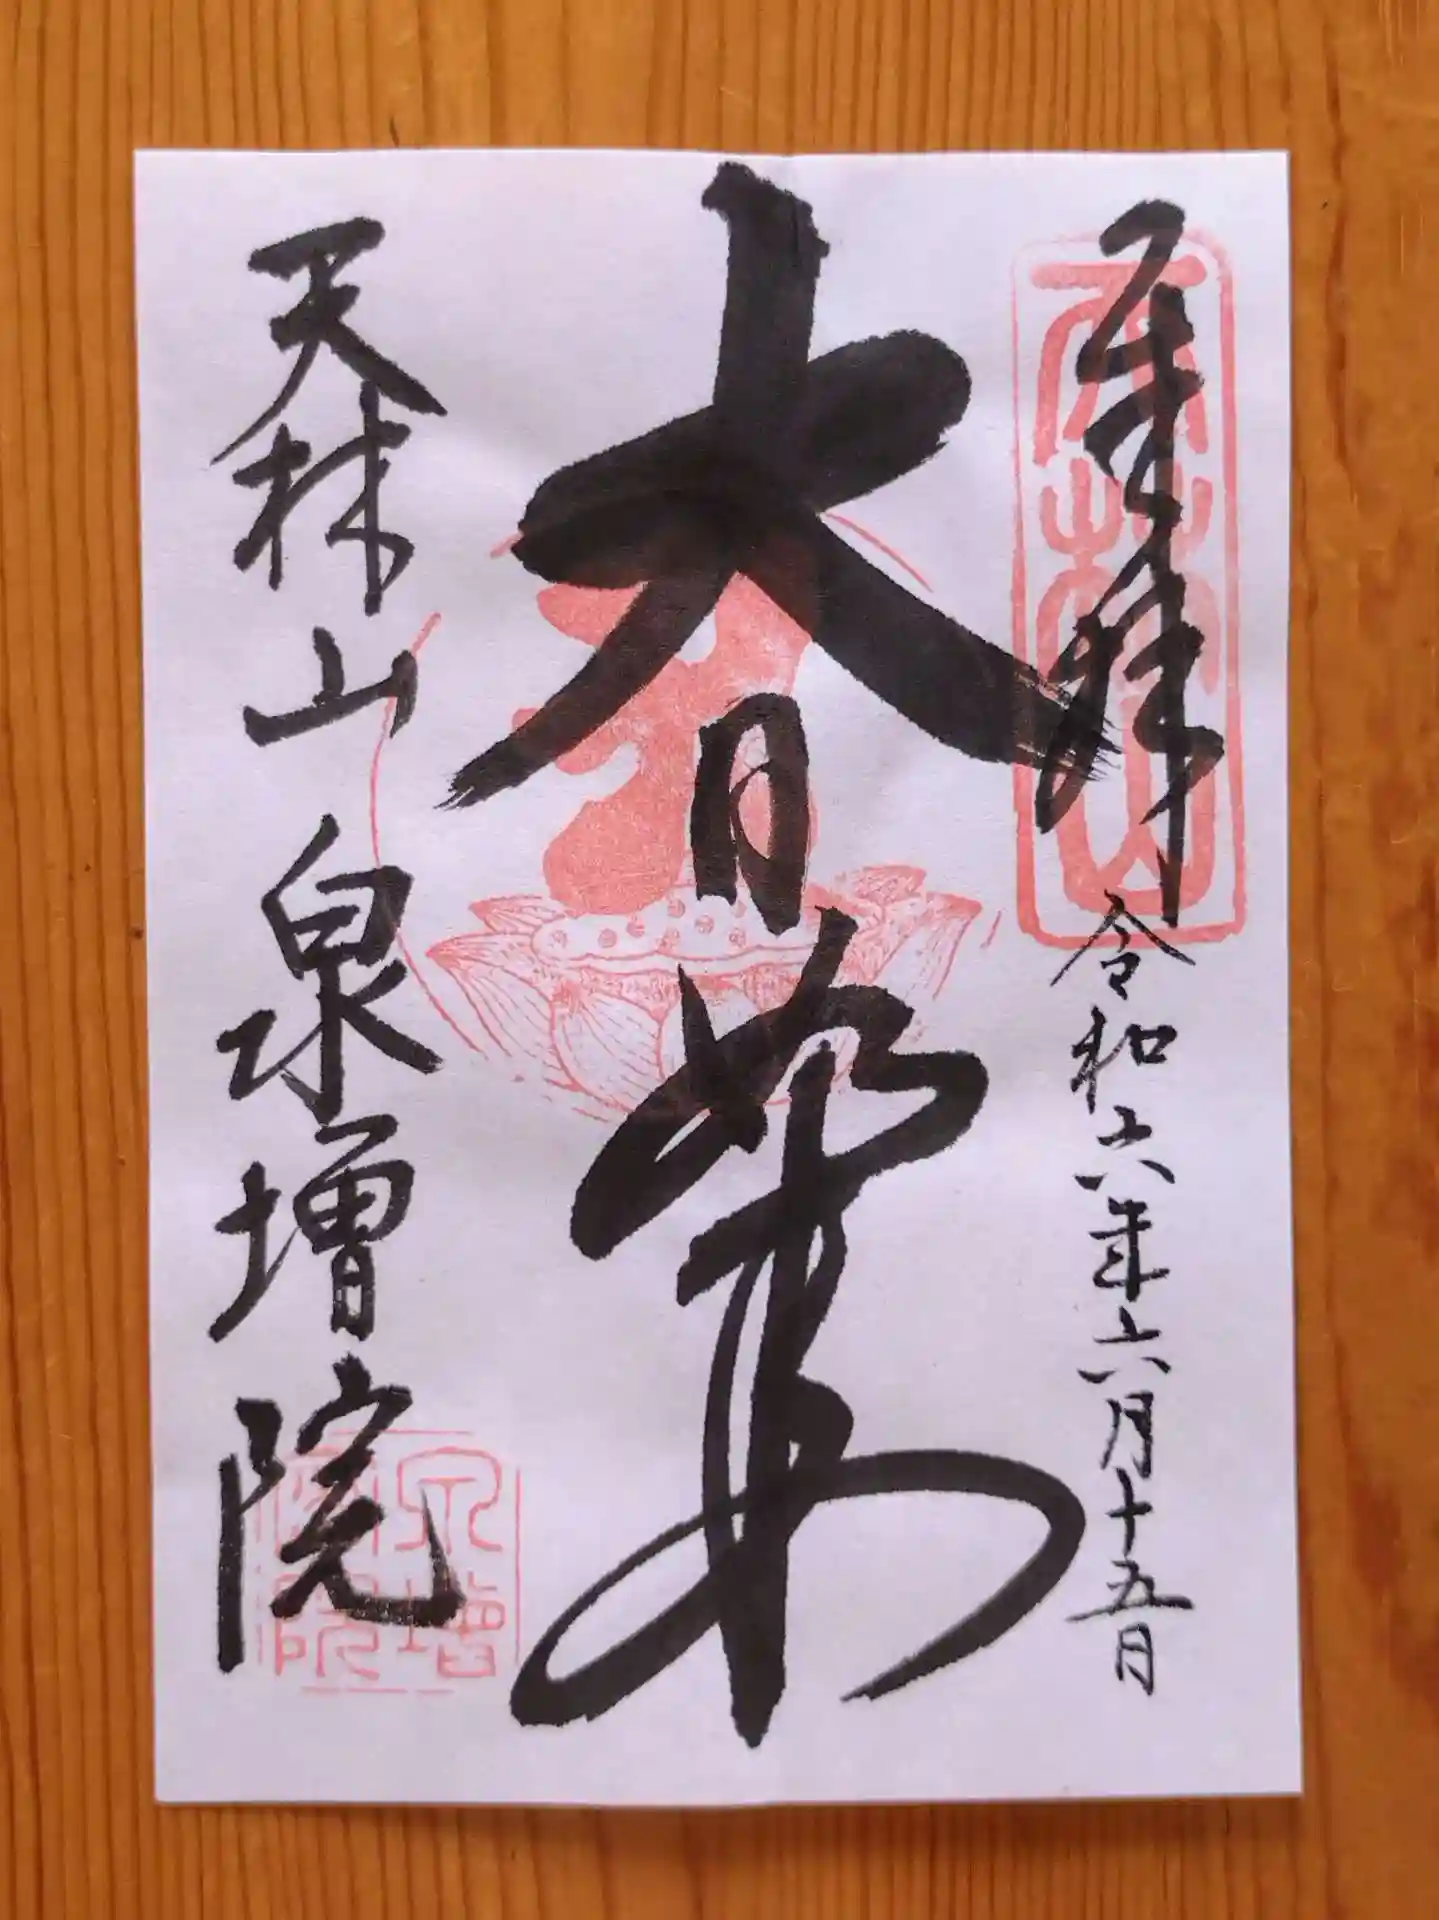 奉拝
令和六年六月十五日
天林山
大日如来
天林山泉増院
泉増院